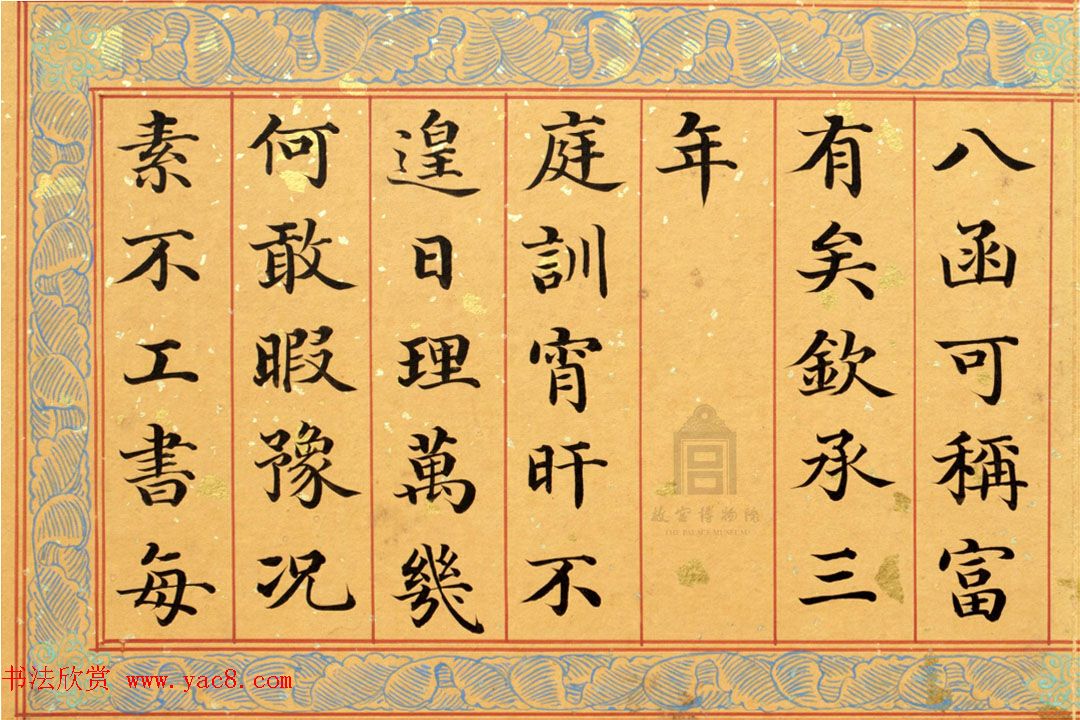 八函可稱富
有矣欽承三
年
庭訓宵旰不
遑日理萬幾
何敢暇豫况
素不工書每
故宫博物院
THE PALACE MUSEUM
书法欣赏 www.yac8.com